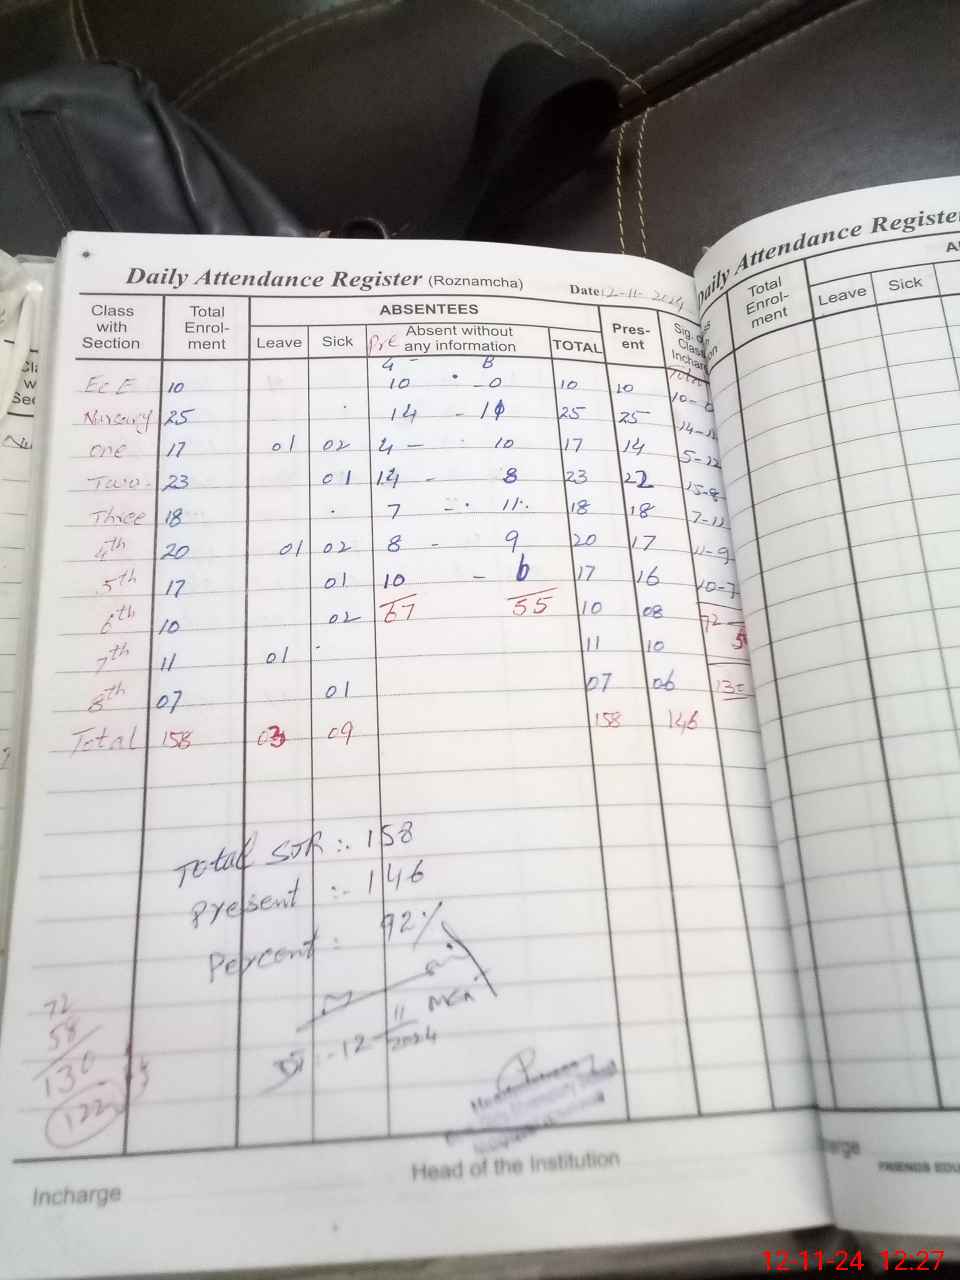 Daily Attendance Register (Roznamcha)
Date 12-11-2024
Class with Section Total Enrol-ment ABSENTEES Leave Sick Pre Absent without any information TOTAL Pres-ent Sig. of Class Incharge
4 - B
Ec E 10 10 - 0 10 10 10-0
Nursery 25 14 - 10 25 25
one 17 01 02 4 - 10 17 14 5-12
Two 23 01 14 - 8 23 22 15-8
Three 18 7 - 11 18 18 7-11
4th 20 01 02 8 - 9 20 17 11-9
5th 17 01 10 - 6 17 16 10-7
6th 10 02 67 55 10 08 72
7th 11 01 11 10
8th 07 01 07 06 130
Total 158 03 09 158 146
Total STR :- 158
Present :- 146
Percent : 92%
DT :- 12-11-2024
72
58
130
122
Head of the Institution
Incharge
Daily Attendance Register
Total Enrol-ment
Leave
Sick
FRIENDS EDU
12-11-24 12:27